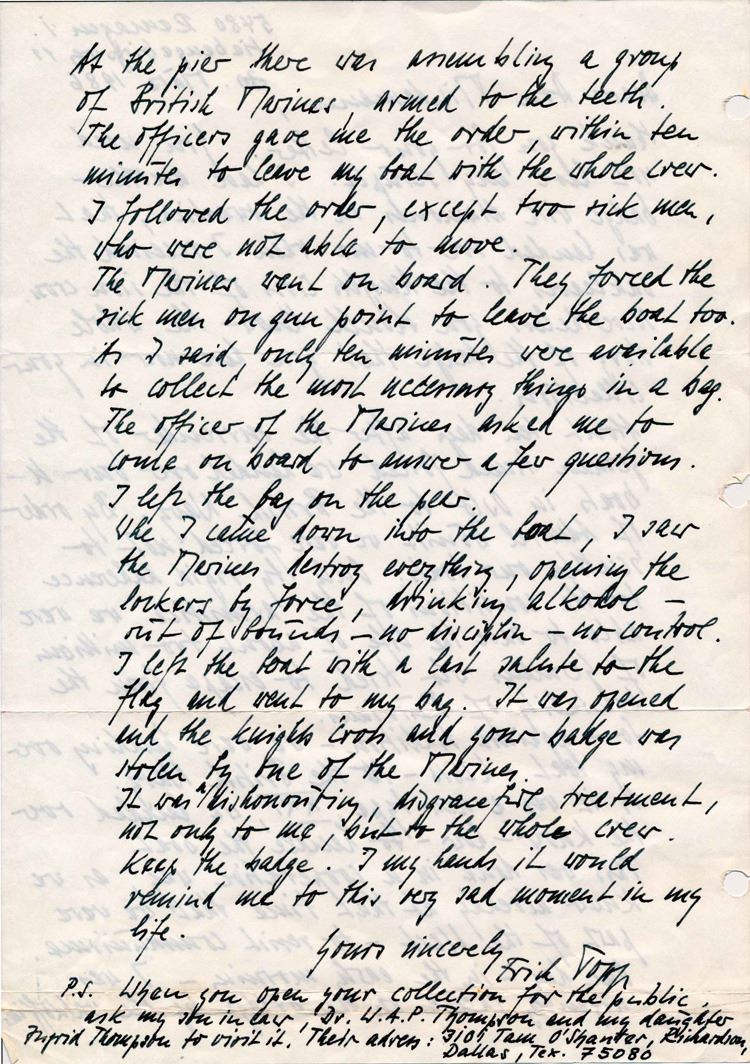 At the pier there was assembling a group
of British Marines, armed to the teeth.
The officers gave me the order, within ten
minutes to leave my boat with the whole crew.
I followed the order, except two sick men,
who were not able to move.
The Marines went on board. They forced the
sick men on gun point to leave the boat too.
As I said, only ten minutes were available
to collect the most necessary things in a bag.
The officer of the Marines asked me to
come on board to answer a few questions.
I left the bag on the pear.
Whe I came down into the boat, I saw
the Marines destroy everything, opening the
lockers by force, drinking alkohol –
out of bounds – no disciplin – no control.
I left the boat with a last salute to the
flag and went to my bag. It was opened
and the knights cross and your badge was
stolen by one of the Marines.
It was a dishonouring, disgraceful treatment,
not only to me, but to the whole crew.
Keep the badge. I my hands it would
remind me to this very sad moment in my
life.
Yours sincerely
Erich Topp
P.S. When you open your collection for the public,
ask my son in law, Dr. W.A.P. Thompson and my daughter
Ingrid Thompson to visit it. Their adress: 3101 Tam O'Shanter, Richardson,
Dallas, Tex. 75080